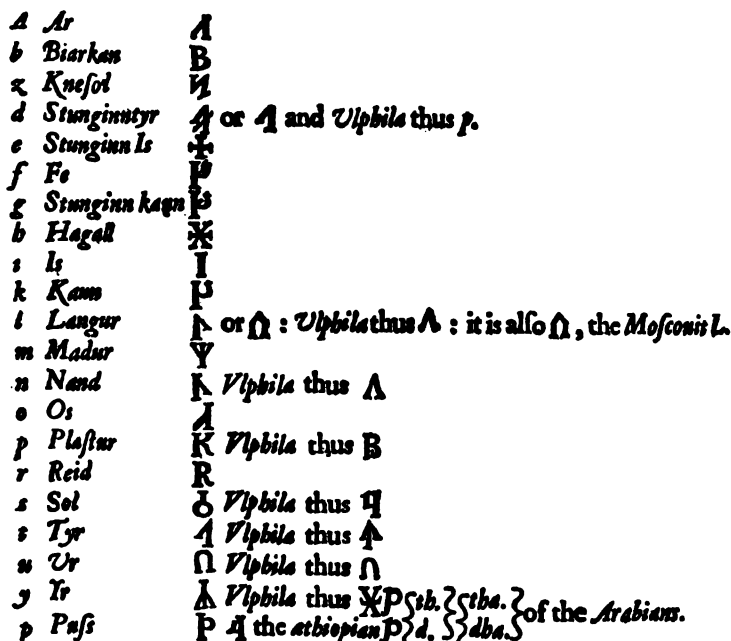 A Ar ᛆ
b Biarkan B
z Kneſol
d Stunginntyr or ᛐ and Ulphila thus p.
e Stunginn Is
f Fe ᚠ
g Stunginn kaun
h Hagall ᚼ
i Is I
k Kaun ᚴ
l Langur ᛚ or Ω : Ulphila thus Λ : it is alſo Ω, the Moſcouit L.
m Madur Ψ
n Nand Vlphila thus Λ
o Os
p Plaſtur K Vlphila thus B
r Reid R
s Sol Vlphila thus
t Tyr ᛐ Vlphila thus ᛏ
u Ur ᑎ Vlphila thus ᑎ
y Yr ᛦ Vlphila thus th. tha. of the Arabians.
p Puſs Þ the æthiopian d, dha.